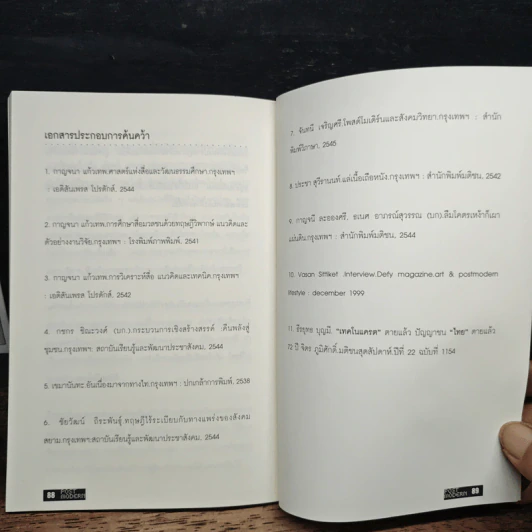 เอกสารประกอบการค้นคว้า
1. กาญจนา แก้วเทพ.ศาสตร์แห่งสื่อและวัฒนธรรมศึกษา.กรุงเทพฯ
: เอดิสันเพรส โปรดักส์. 2544
2. กาญจนา แก้วเทพ.การศึกษาสื่อมวลชนด้วยทฤษฎีวิพากษ์ แนวคิดและ
ตัวอย่างงานวิจัย.กรุงเทพฯ : โรงพิมพ์ภาพพิมพ์. 2541
3. กาญจนา แก้วเทพ.การวิเคราะห์สื่อ แนวคิดและเทคนิค.กรุงเทพฯ
: เอดิสันเพรส โปรดักส์. 2542
4. กชกร ชิณะวงศ์ (บก.).กระบวนการเชิงสร้างสรรค์ :คืนพลังสู่
ชุมชน.กรุงเทพฯ: สถาบันเรียนรู้และพัฒนาประชาสังคม. 2544
5. เขมานันทะ.อันเนื่องมาจากทางไท.กรุงเทพฯ : ปกเกล้าการพิมพ์. 2538
6. ชัยวัฒน์ ถิระพันธุ์.ทฤษฎีไร้ระเบียบกับทางแพร่งของสังคม
สยาม.กรุงเทพฯ:สถาบันเรียนรู้และพัฒนาประชาสังคม. 2544
88 POST MODERN
7. จันทนี เจริญศรี.โพสต์โมเดิร์นและสังคมวิทยา.กรุงเทพฯ : สำนัก
พิมพ์วิภาษา. 2545
8. ประชา สุวีรานนท์.แล่เนื้อเถือหนัง.กรุงเทพฯ : สำนักพิมพ์มติชน. 2542
9. กาญจนี ละอองศรี. ธเนศ อาภรณ์สุวรรณ (บก).ลืมโคตรเหง้าก็เผา
แผ่นดิน.กรุงเทพฯ : สำนักพิมพ์มติชน. 2544
10. Vasan Sittiket .Interview.Defy magazine.art & postmodern
lifestyle : december 1999
11. ธีรยุทธ บุญมี. "เทคโนแครต" ตายแล้ว ปัญญาชน "ไทย" ตายแล้ว
72 ปี จิตร ภูมิศักดิ์.มติชนสุดสัปดาห์.ปีที่ 22 ฉบับที่ 1154
POST MODERN 89